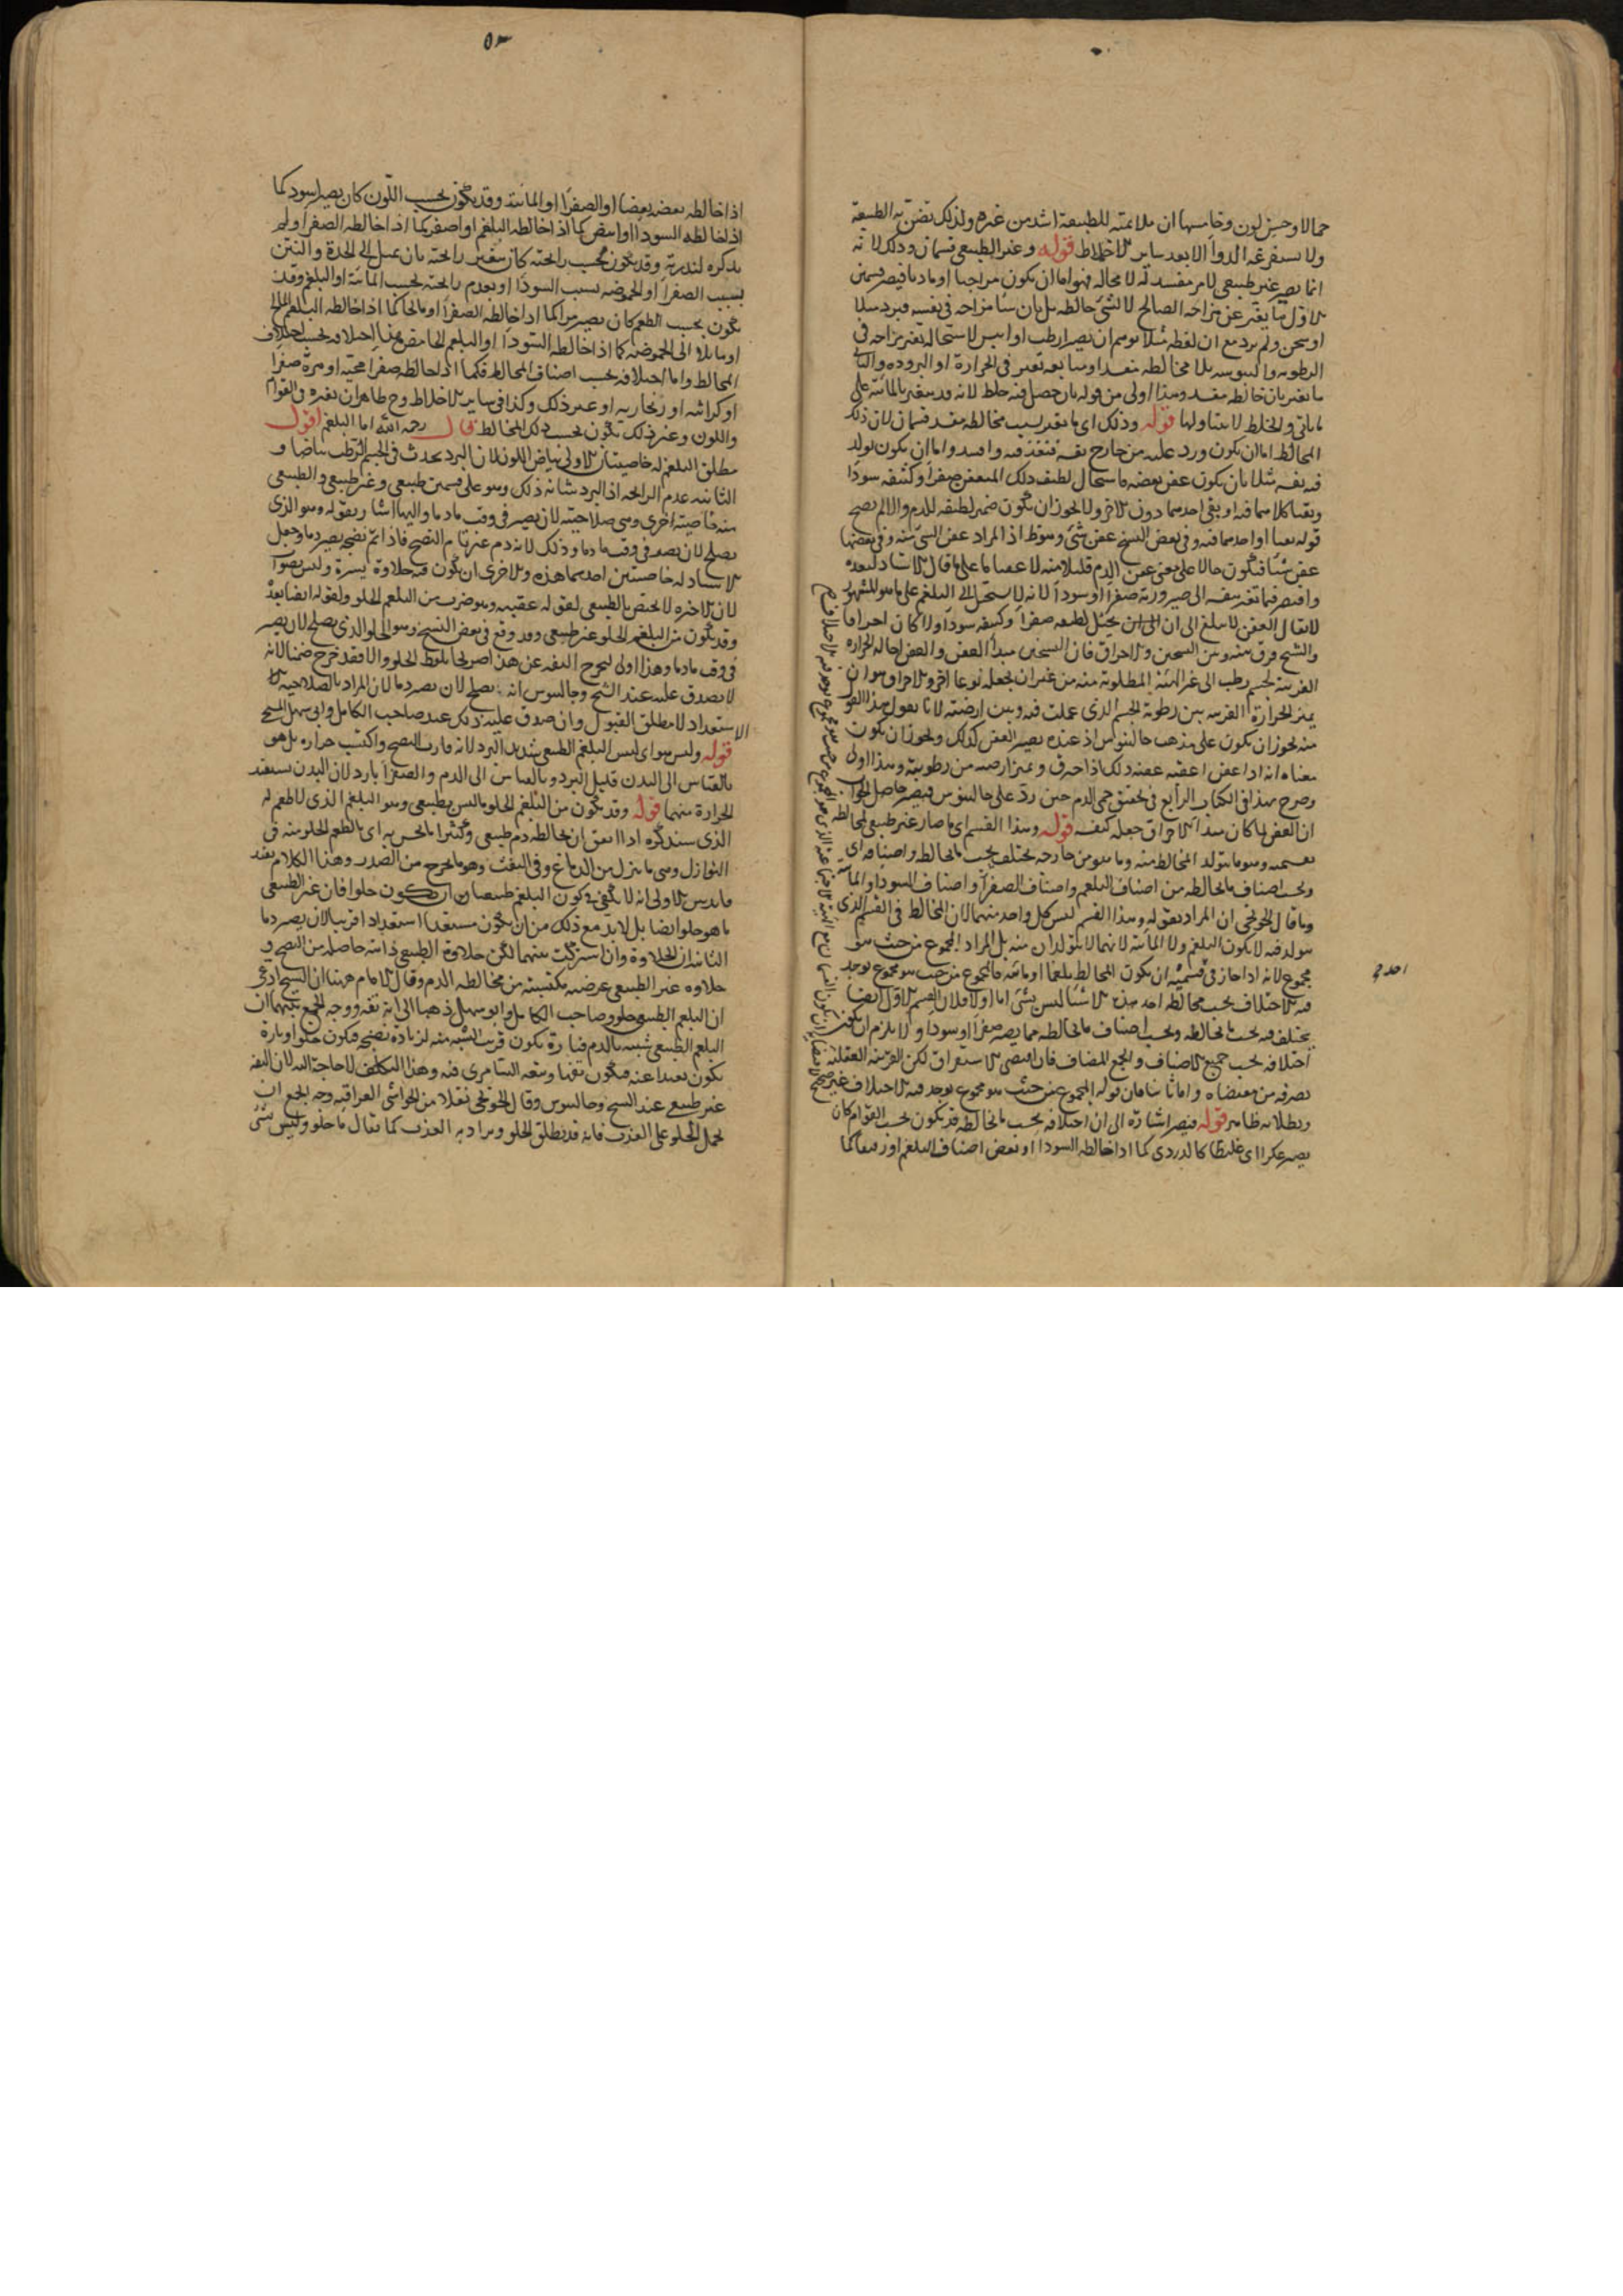 جمالا وحسن لون وخامسها ان ملايمته للطبيعة اشد من غيره ولذلك تضن به الطبيعة
ولا يستفرغه الدواء الا بعد ساير الاخلاط قوله وغير الطبيعي قسمان وذلك لانه
انما يصير غير طبيعي لامر مفسد له لا محالة فهو اما ان يكون مزاجيا او ماديا فيصير قسمين
الاول ما تغير عن مزاجه الصالح لا لشي خالطه بل بان ساء مزاجه في نفسه فبرد مثلا
او سخن ولم يرد مع ان لفظة مثلا توهم ان يصير ارطب او ايبس لاستحالة تغير مزاجه في
الرطوبة واليبوسة بلا مخالطة
ما تغير بان خالطه وهذا اولى من قوله بان حصل فيه خلط لانه قد يتغير بالمائية على
ما ياتي والخلط لا يتناولها قوله وذلك اي ما تغير بسبب مخالطة مفسد قسمان لان ذلك
المخالط اما ان يكون ورد عليه من خارج فنفذ فيه وافسده واما ان يكون تولد
فيه نفسه مثلا بان يكون عفن بعضه فاستحال لطيف ذلك المتعفن صفراء وكثيفه سوداء
وبقيا كلاهما فيه او بقي احدهما دون الاخر ولا يجوز ان يكون ضمير لطيفه للدم والا لم يصح
قوله بقيا او احدهما فيه وفي بعض النسخ عفن شي وهو غلط اذ المراد عفن الشي منه وفي بعضها
عفن شيئا فيكون حالا على معنى عفن الدم قليلا منه
لا يقال العفن لا يبلغ الى ان يحيل لطيفه صفراء وكثيفه سوداء والا كان احراقا
والشيخ فرق بينه وبين التسخين والاحراق فان التسخين مبدأ العفن والعفن احالة الحرارة
الغريبة لجسم رطب الى غير الهيئة المطلوبة منه من غير ان يجعله نوعا اخر والاحراق هو ان
يميز الحرارة الغريبة بين رطوبة الجسم الذي عملت فيه وبين ارضيته لانا نقول هذا القول
منه يجوز ان يكون على مذهب جالينوس اذ عنده يصير العفن كذلك ويجوز ان يكون
وصرح بهذا في الكتاب الرابع في تحقيق حمى الدم حين رد على جالينوس فيصير حاصل الجواب
ان العفن لما كان مبدأ الاحراق جعله كنفسه قوله وهذا القسم اي ما صار غير طبيعي لمخالطة
بقسميه وهو ما يتولد المخالط منه وما هو من خارجه يختلف بحسب ما يخالطه واصنافه اي
وبحسب اصناف ما يخالطه من اصناف البلغم واصناف الصفراء واصناف السوداء والمائية
وما قال الخونجي ان المراد بقوله وهذا القسم ليس كل واحد منهما لان المخالط في القسم الذي
تولد فيه لا يكون البلغم ولا المائية لانهما لا يتولدان منه بل المراد المجموع من حيث هو
مجموع لانه اذا جاز في قسميه ان يكون المخالط بلغما او مائية فالمجموع من حيث هو مجموع يوجد
فيه الاختلاف بحسب مخالطة احد هذه الاشياء ليس بشي اما اولا فلان القسم الاول ايضا
يختلف فيه بحسب ما يخالطه وبحسب اصناف ما يخالطه مما يصير صفراء او سوداء ولا يلزم ان يكون
اختلافه بحسب جميع الاصناف والجمع المضاف وان اقتضى الاستغراق لكن القرينة العقلية
تصرفه عن مقتضاه واما ثانيا فان قوله المجموع من حيث هو مجموع يوجد فيه الاختلاف غير صحيح
وبطلانه ظاهر قوله فيصير اشارة الى ان اختلافه بحسب ما يخالطه قد يكون بحسب القوام كان
يصير عكرا اي غليظا كالدردي كما اذا خالطه السوداء او بعض اصناف البلغم او رقيقا كما
٥٣
اذا خالطه بعضه بعضا او الصفراء او المائية وقد يكون بحسب اللون كان يصير اسود كما
اذا خالطه السوداء او ابيض كما اذا خالطه البلغم او اصفر كما اذا خالطه الصفراء ولم
يذكره لندرته وقد يكون بحسب رائحته كان يتغير رائحته بان يميل الى الحدة والنتن
بسبب الصفراء او الحموضة بسبب السوداء او بعدم رائحته بحسب المائية او البلغم وقد
يكون بحسب الطعم كان يصير مرا كما اذا خالطه الصفراء او مالحا كما اذا خالطه البلغم المالح
او مائلا الى الحموضة كما اذا خالطه السوداء او البلغم الحامض هذا اختلافه بحسب اختلاف
المخالط واما اختلافه بحسب اصناف المخالط فكما اذا خالطه صفراء محية او مرة صفراء
او كراثية او زنجارية او غير ذلك وكذا في ساير الاخلاط وح ظاهر ان تغيره في القوام
واللون وغير ذلك يكون بحسب ذلك المخالط قال رحمه الله اما البلغم اقول
مطلق البلغم له خاصيتان الاولى بياض اللون لان البرد يحدث في الجسم الرطب بياضا و
الثانية عدم الرائحة اذ البرد شانه ذلك وهو على قسمين طبيعي وغير طبيعي والطبيعي
منه خاصيته اخرى وهي صلاحيته لان يصير في وقت ما دما واليها اشار بقوله وهو الذي
يصلح لان يصير في وقت ما دما وذلك لانه دم غير تام النضج فاذا تم نضجه يصير دما وجعل
الاستاد له خاصيتين احدهما هذه والاخرى ان يكون فيه حلاوة يسيرة وليس بصواب
لان الاخيرة لا تختص بالطبيعي لقوله عقيبه وهو ضرب من البلغم الحلو ولقوله ايضا بعد
وقد يكون من البلغم الحلو غير طبيعي وقد وقع في بعض النسخ وهو الحلو الذي يصلح لان يصير
في وقت ما دما وهذا اولى ليخرج التفه عن هذا
لا يصدق عليه عند الشيخ وجالينوس انه يصلح لان يصير دما لان المراد بالصلاحية
الاستعداد لا مطلق القبول وان صدق عليه ذلك عند صاحب الكامل وابي سهل المسيحي
قوله وليس هو اي ليس البلغم الطبيعي شديد البرد لانه قارب النضج واكتسب حرارة بل هو
بالقياس الى البدن قليل البرد وبالقياس الى الدم والصفراء بارد لان البدن يستفيد
الحرارة منهما قوله وقد يكون من البلغم الحلو ما ليس بطبيعي وهو البلغم الذي لا طعم له
الذي سنذكره اذا اتفق ان خالطه دم طبيعي وكثيرا ما يحس به اي بالطعم الحلو منه في
النوازل وهي ما ينزل من الدماغ وفي النفث وهو ما يخرج من الصدر وهذا الكلام يفيد
فايدتين الاولى انه لا يكفي في كون البلغم طبيعيا ان يكون حلوا فان غير الطبيعي
ما هو حلو ايضا بل لا بد مع ذلك من ان يكون مستعدا استعدادا قريبا لان يصير دما
الثانية ان الحلاوة وان اشتركت بينهما لكن حلاوة الطبيعي ذاتية حاصلة من النضج و
حلاوة غير الطبيعي عرضية مكتسبة من مخالطة الدم وقال الامام ههنا ان الشيخ ادعى
ان البلغم الطبيعي حلو وصاحب الكامل وابو سهل ذهبا الى انه تفه ووجه الجمع بينهما ان
البلغم الطبيعي شبيه بالدم فتارة يكون قريب الشبه منه لزيادة نضجه فيكون حلوا وتارة
يكون بعيدا عنه فيكون تفها وتبعه السامري فيه وهذا التكلف لا حاجة اليه لان التفه
غير طبيعي عند الشيخ وجالينوس وقال الخونجي نقلا من الحواشي العراقية وجه الجمع ان
يحمل الحلو على العذب فانه قد يطلق الحلو ويراد به العذب كما يقال ماء حلو وليس شي